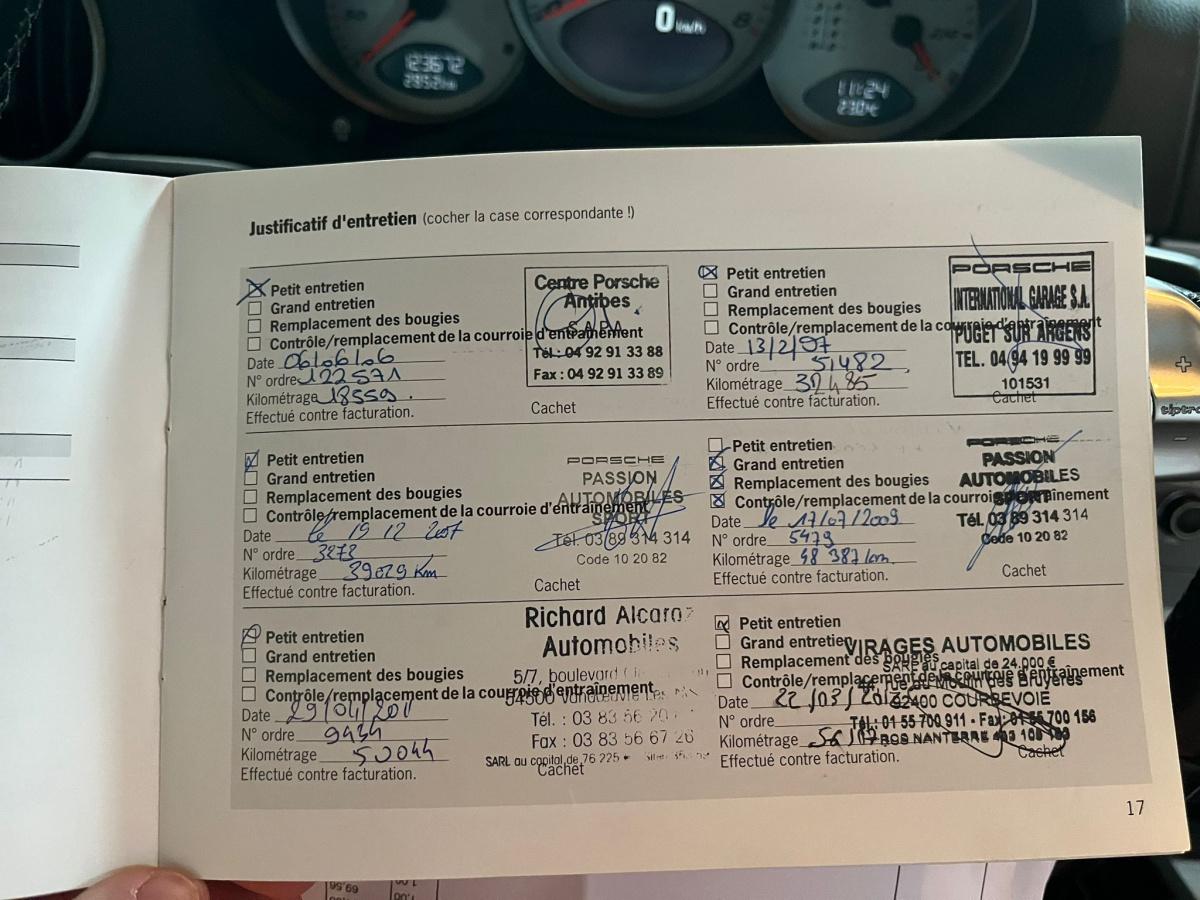 123672
2952 km
0 km/h
8
11:24
23.0°C
Justificatif d'entretien (cocher la case correspondante !)
Petit entretien
Grand entretien
Remplacement des bougies
Contrôle/remplacement de la courroie d'entraînement
Date 06/06/06
N° ordre 122571
Kilométrage 18559
Effectué contre facturation.
Centre Porsche
Antibes
Tél.: 04 92 91 33 88
Fax : 04 92 91 33 89
Cachet
Petit entretien
Grand entretien
Remplacement des bougies
Contrôle/remplacement de la courroie d'entraînement
Date 13/2/07
N° ordre 51482
Kilométrage 32485
Effectué contre facturation.
PORSCHE
INTERNATIONAL GARAGE S.A.
PUGET SUR ARGENS
TEL. 04 94 19 99 99
101531
Cachet
Petit entretien
Grand entretien
Remplacement des bougies
Contrôle/remplacement de la courroie d'entraînement
Date le 19 12 2007
N° ordre 3272
Kilométrage 39029 Km
Effectué contre facturation.
PORSCHE
PASSION
AUTOMOBILES
SPORT
Tél. 03 89 314 314
Code 10 20 82
Cachet
Petit entretien
Grand entretien
Remplacement des bougies
Contrôle/remplacement de la courroie d'entraînement
Date le 17/07/2009
N° ordre 5479
Kilométrage 48 387 km
Effectué contre facturation.
PORSCHE
PASSION
AUTOMOBILES
SPORT
Tél. 03 89 314 314
Code 10 20 82
Cachet
Petit entretien
Grand entretien
Remplacement des bougies
Contrôle/remplacement de la courroie d'entraînement
Date 29/04/2011
N° ordre 9434
Kilométrage 50044
Effectué contre facturation.
Richard Alcaraz
Automobiles
5/7, boulevard
54500 Vandœuvre Les
Tél. : 03 83 56 20
Fax : 03 83 56 67 26
SARL au capital de 76 225 €
Cachet
Petit entretien
Grand entretien
Remplacement des bougies
Contrôle/remplacement de la courroie d'entraînement
Date 22/03/
N° ordre
Kilométrage
Effectué contre facturation.
VIRAGES AUTOMOBILES
SARL au capital de 24.000 €
rue du Moulin des Bruyères
92400 COURBEVOIE
Tél.: 01 55 700 911 - Fax: 01 55 700 156
RCS NANTERRE
Cachet
17
tiptro
+
-
69,56
1,00